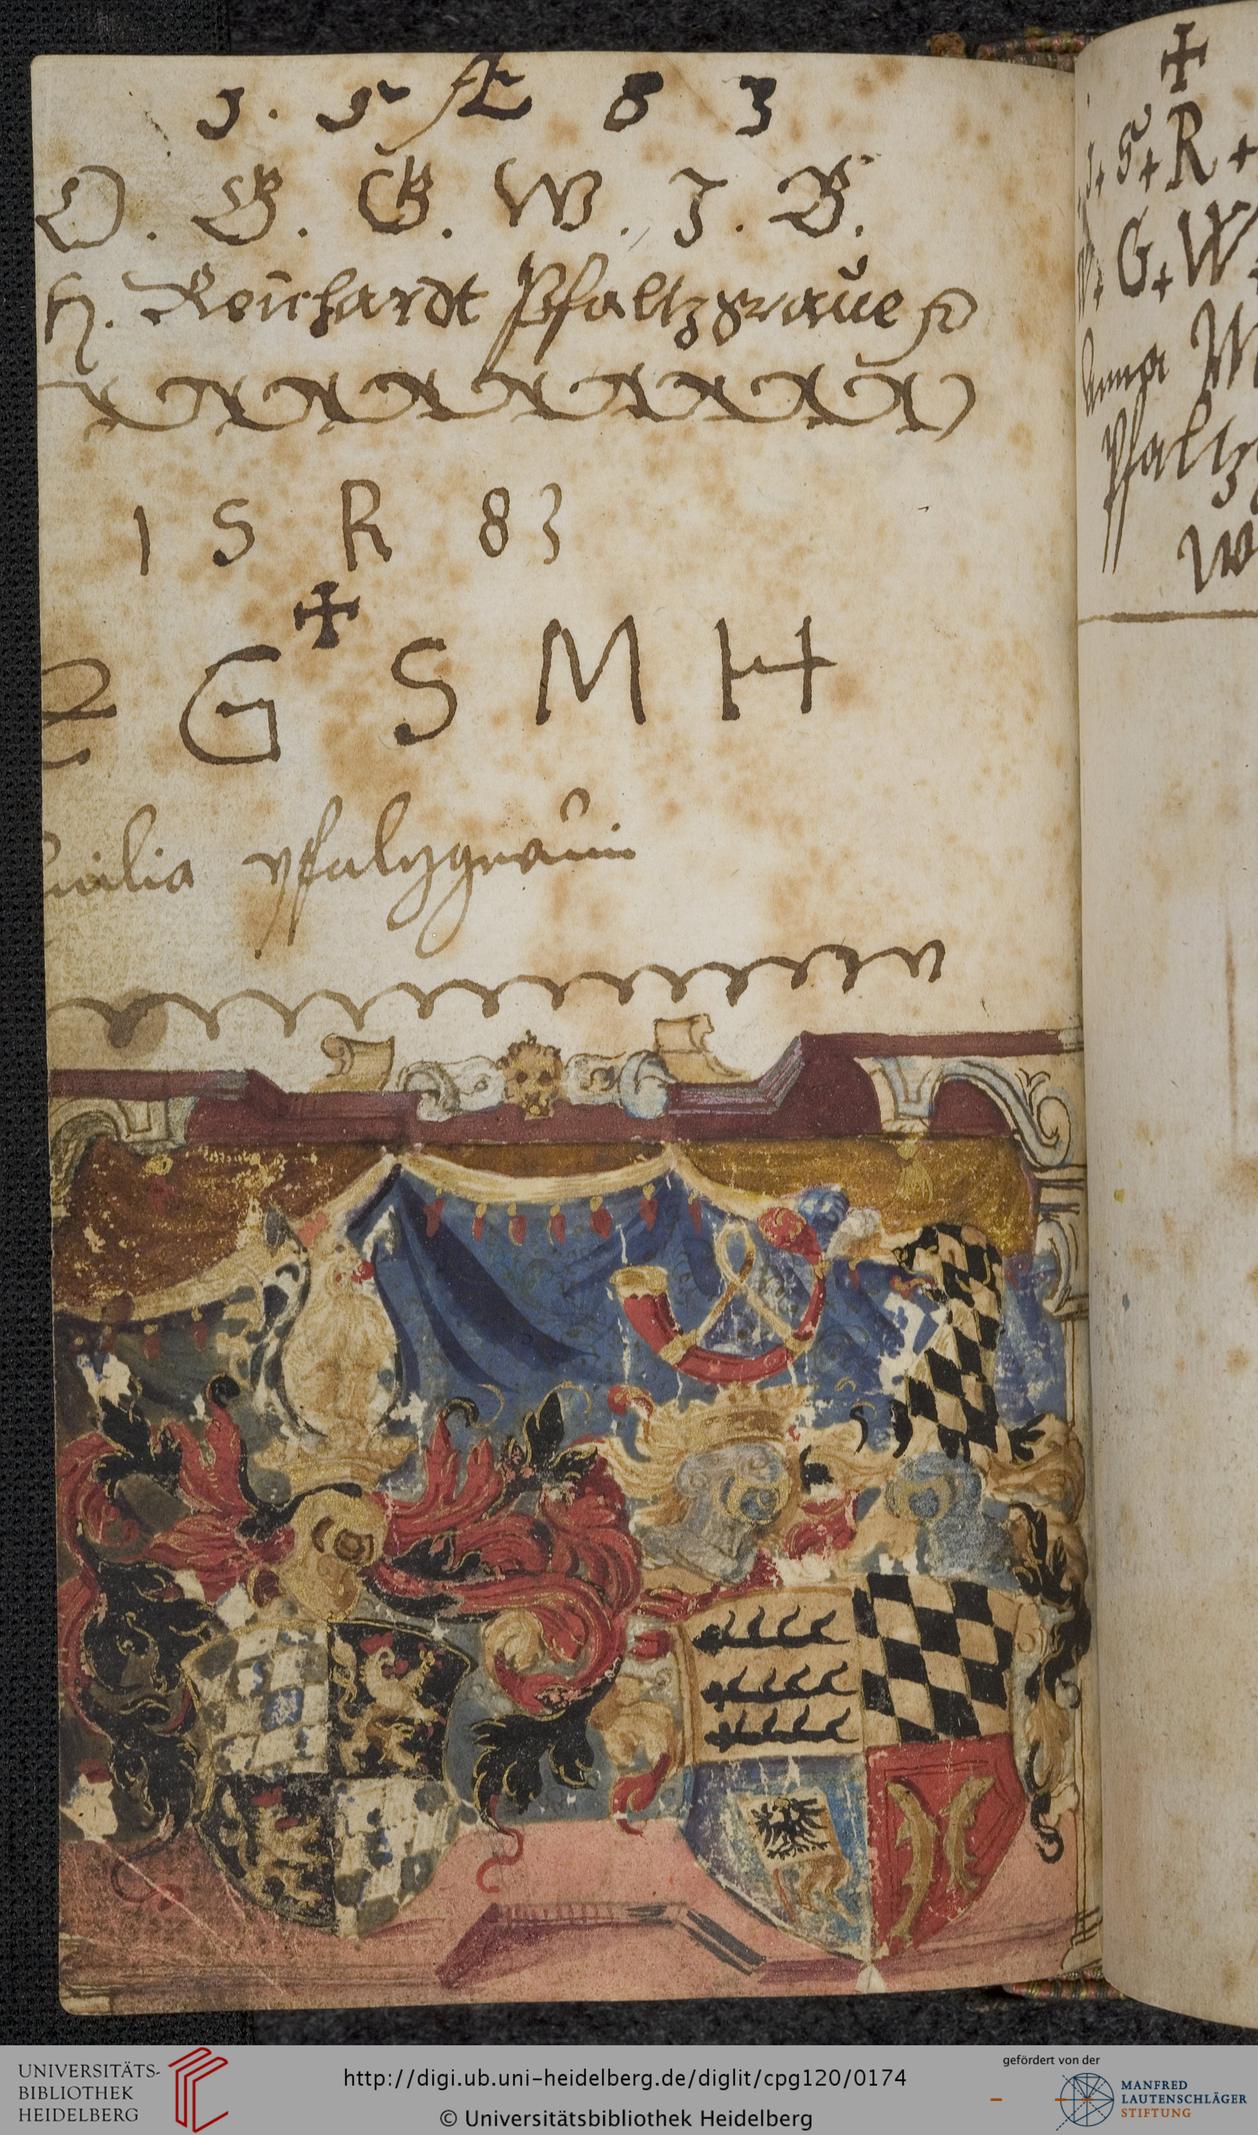 1 · 5 Æ 8 3
O. G. G. W. J. B.
H. Reichardt Pfaltzgraue
1 S R 83
G S M H
ilia pfalzgräuin
+
1+5+R+
G+W+
Anna M
Pfaltz
W
UNIVERSITÄTS-
BIBLIOTHEK
HEIDELBERG
http://digi.ub.uni-heidelberg.de/diglit/cpg120/0174
© Universitätsbibliothek Heidelberg
gefördert von der
MANFRED
LAUTENSCHLÄGER
STIFTUNG